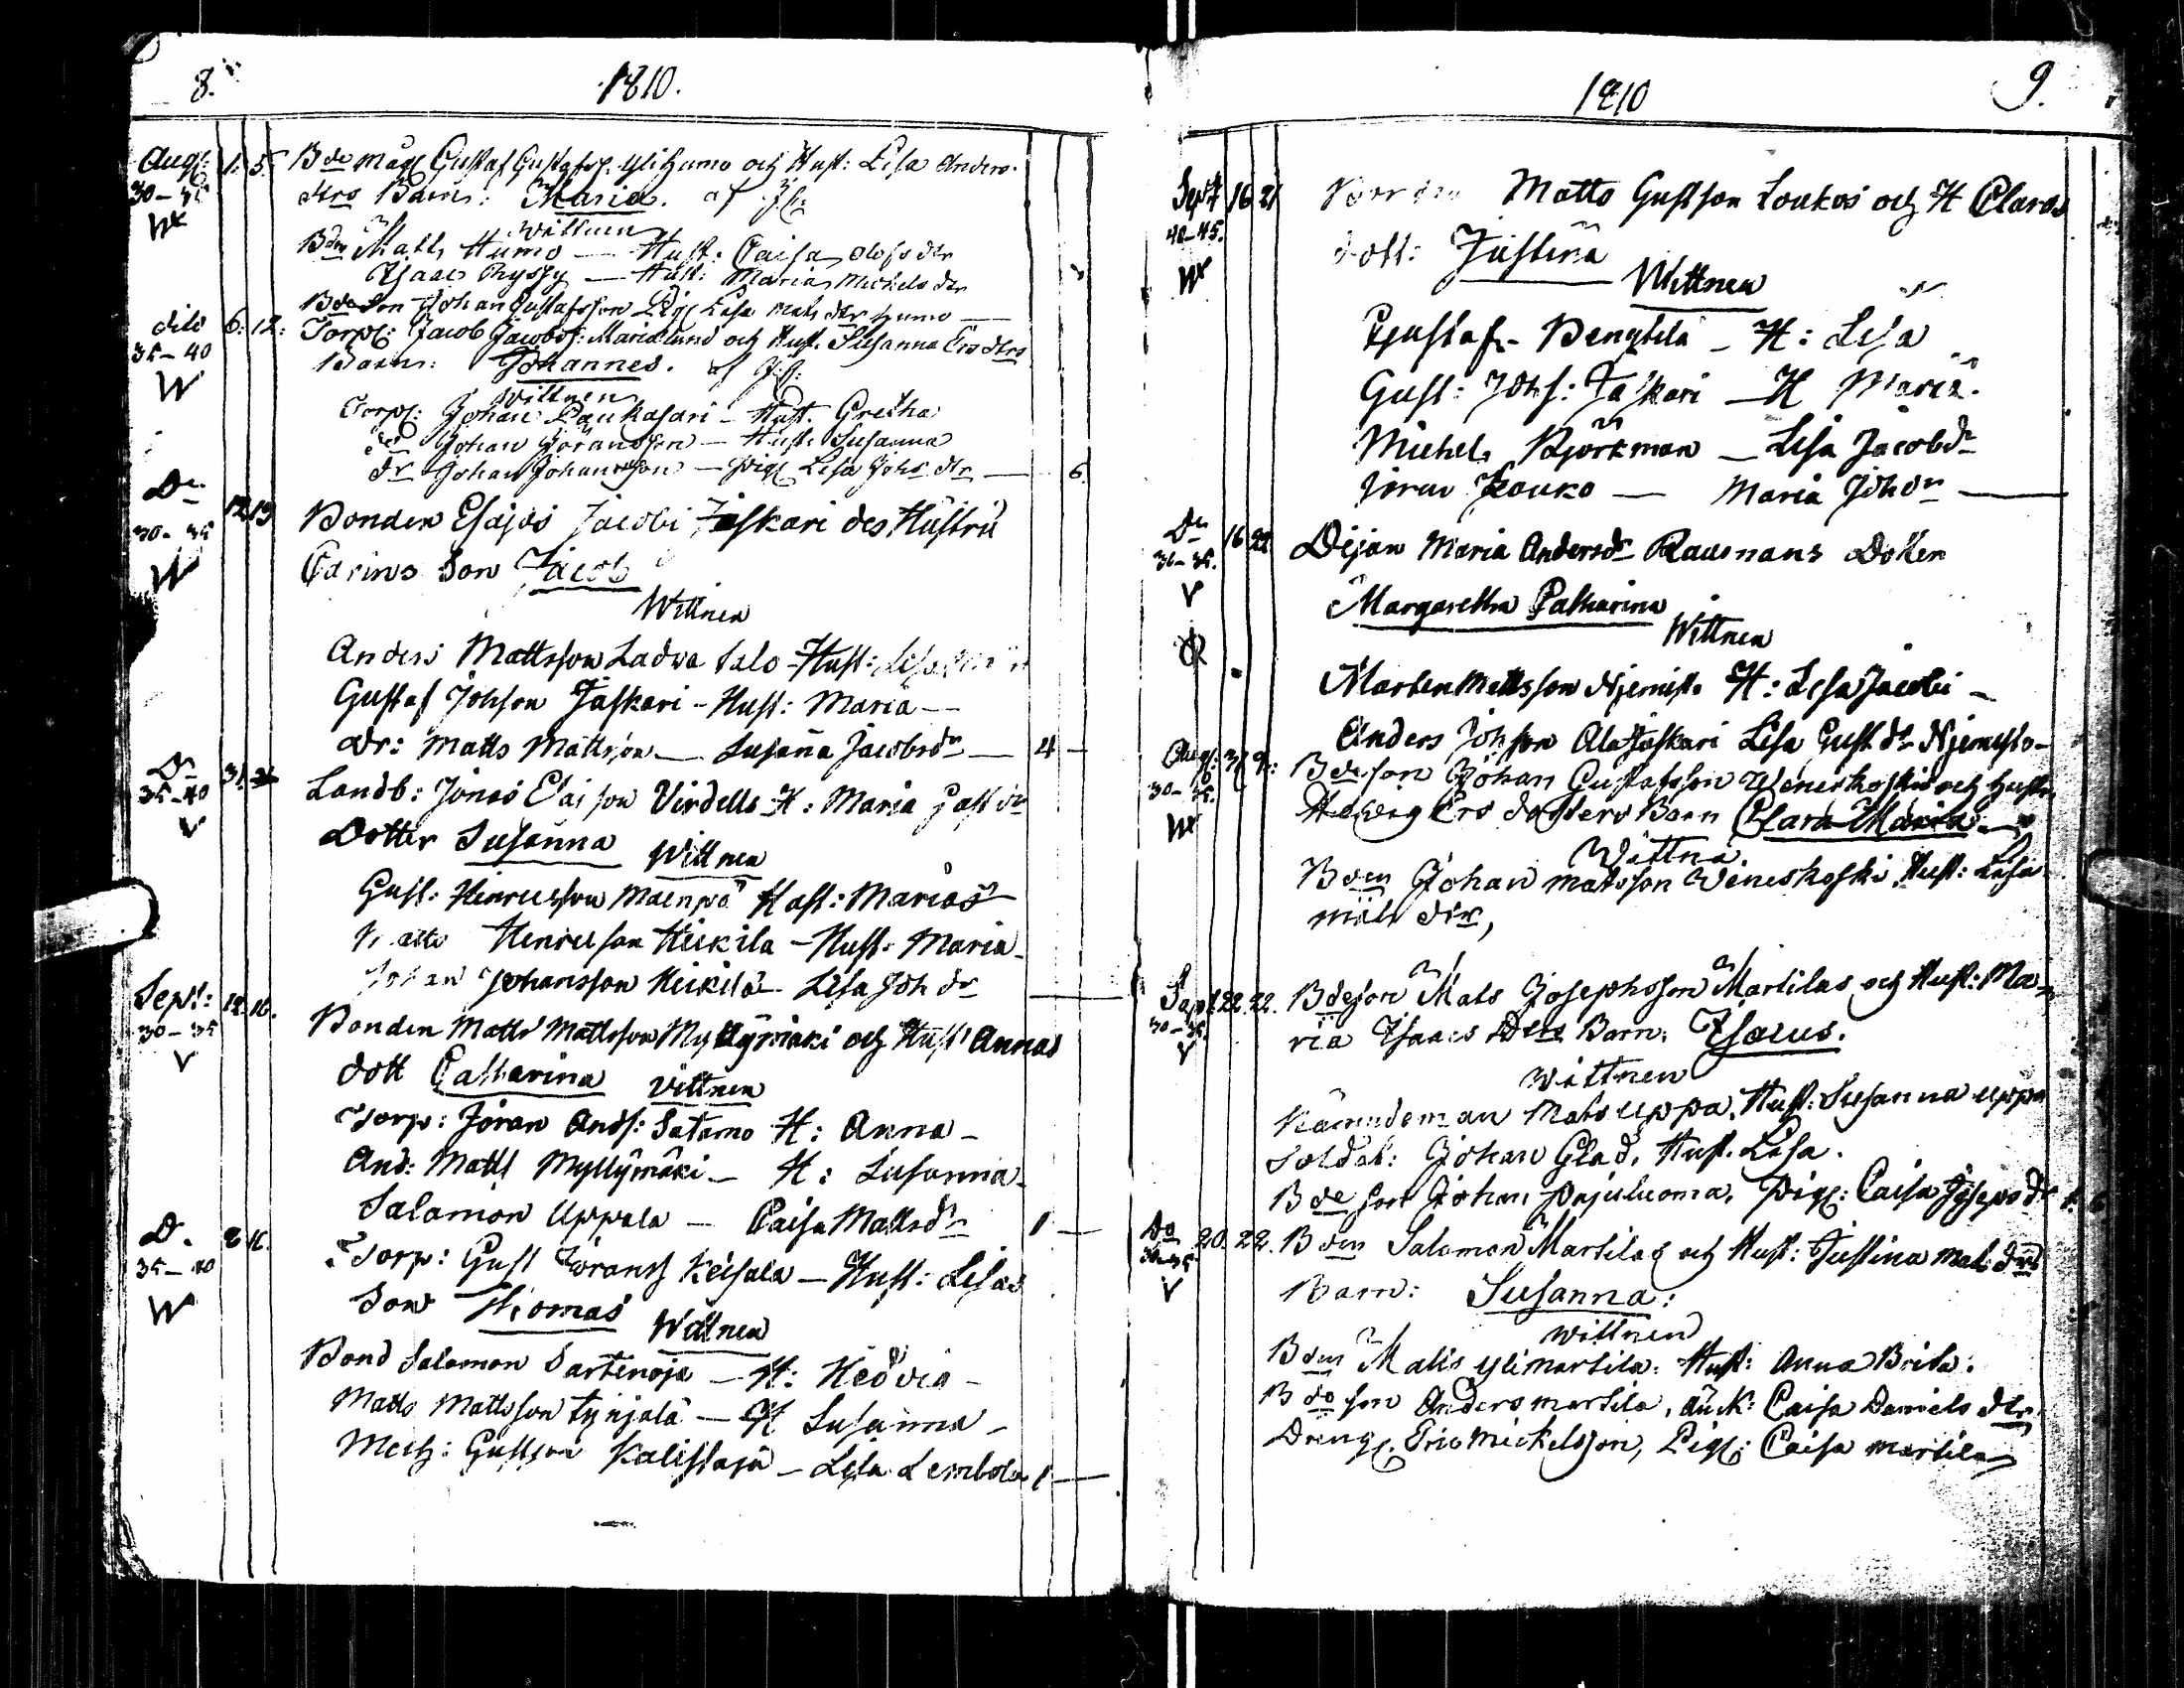 8.
1810.
Aug: 1. 5. Bde måg Gustaf Gustafss. Ylihumo och Hust: Lisa Anders
30-35 dtrs Barn: Maria.
Wittnen
Bden Matts Humo — Hust: Caisa Olofs dtr
Isaac Ryssy — Hust: Maria Michels dtr
Bde Son Johan Gustafsson Pig: Lisa Mats dtr Humo —
dito 6. 12. Torp: Jacob Jacobss: Marielund och Hust. Susanna Ers dtrs
35-40 Barn: Johannes.
W
Wittnen
Torp: Johan Paukasari - Hust. Gretha
do Johan Jöransson - Hust. Susanna
dr Johan Johansson - Pig: Lisa Johs dtr — 6.
Do 12 19 Bonden Esajas Jacobi Jaskari des Hustru
30-35 Carins Son Jacob
W
Wittnen
Anders Mattsson Ladvatalo - Hust: Lisa
Gustaf Johson Jaskari - Hust: Maria —
Dr: Matts Mattsson — Susanna Jacobsdr — 4 —
Do 31. Landb: Jonas Elaisson Virdells H: Maria Gust dr
35-40 Dotter Susanna
V
Wittnen
Gust: Henricsson Mäenpä Hust: Maria
Matts Henricson Heikilä - Hust. Maria
Johan Johansson Heikilä - Lisa Joh dr —
Sept: 12. 16. Bonden Matts Mattsson Myllymäki och Hust Annas
30-35 dott Catharina
V
Vittnen
Torp: Jöran Ands: Satamo H: Anna -
And: Matts Myllymäki - H: Susanna
Salamon Uppala — Caisa Mattsdr 1 —
Do 8 16. Torp: Gust Jöranss Keisala - Hust: Lisas
35-40 Son Thomas
W
Wittnen
Bond Salomon Sartenoja - H: Hedvig -
Matts Mattsson Tynjälä - H Susanna -
Mich: Gustson Kalistaja - Lisa Lembola 1 —
1810
9.
Sept 16 21 Matts Gustson Loukos och H Claras
40-45. dott: Justina
W
Wittnen
Gustaf Pengtila - H: Lisa
Gust: Johs: Jaskari - H Maria.
Michel Björkman - Lisa Jacobdr
Jöran Kouko — Maria Johdr —
Do 16 22 Pijan Maria Andersdr Rausmans Dotter
30-35. Margaretha Catharina
V
Wittnen
Marten Mattsson Njemist. H: Lisa Jacobi -
Anders Johsson Alajaskari Lisa Gust dr Njemisto -
Aug: 31 9: Bde son Johan Gustafsson Veneskoski och Hustr.
30-35. Hedvig Ers dotters Barn Clara Maria
W
Wittna.
Bden Johan Matsson Veneskoski, Hust: Lisa
Mats dtr,
Sept. 22. 22. Bdeson Mats Josephsson Martilas och Hust: Ma-
30-35. ria Isaacs Dtrs Barn: Isacus.
V
Wittnen
Nämndeman Mats Uppa, Hust: Susanna Uppa
Soldat: Johan Glad, Hust. Lisa.
Bde son Johan Pajuluoma, Pig: Caisa Josepsdr 1. 6
Do 20. 22. Bden Salomon Martilas och Hust: Justina Mats Dtrs
30-35 Barn: Susanna:
V
Wittnen
Bden Matts Ylimartila. Hust: Anna Brita.
Bde son Anders Martila, Änk: Caisa Daniels dtr,
Dreng. Eric Mickelsson, Pig: Caisa Martila